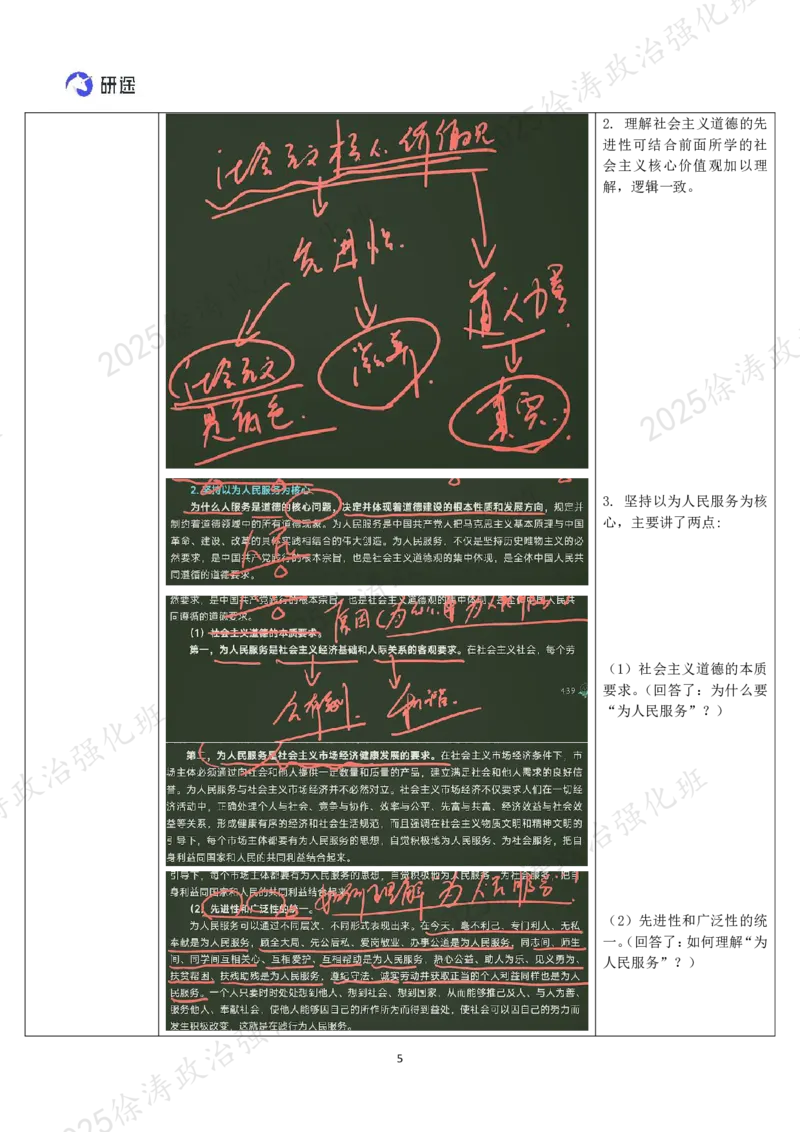 研途
社会主义核心价值观
先进性
道义力量
社会主义
底色
真实
2. 理解社会主义道德的先
进性可结合前面所学的社
会主义核心价值观加以理
解，逻辑一致。
2. 坚持以为人民服务为核心
为什么人服务是道德的核心问题，决定并体现着道德建设的根本性质和发展方向，规定并
制约着道德领域中的所有道德现象。为人民服务是中国共产党人把马克思主义基本原理与中国
革命、建设、改革的具体实践相结合的伟大创造。为人民服务，不仅是坚持历史唯物主义的必
然要求，是中国共产党践行的根本宗旨，也是社会主义道德观的集中体现，是全体中国人民共
同遵循的道德要求。
人民
3. 坚持以为人民服务为核
心，主要讲了两点：
然要求，是中国共产党践行的根本宗旨，也是社会主义道德观的集中体现，是全体中国人民共
同遵循的道德要求。
原因(为什么要为人民服务)
（1）社会主义道德的本质要求。
第一，为人民服务是社会主义经济基础和人际关系的客观要求。在社会主义社会，每个劳
公有制
和谐
439
第二，为人民服务是社会主义市场经济健康发展的要求。在社会主义市场经济条件下，市
场主体必须通过向社会和他人提供一定数量和质量的产品，建立满足社会和他人需求的良好信
誉。为人民服务与社会主义市场经济并不必然对立。社会主义市场经济不仅要求人们在一切经
济活动中，正确处理个人与社会、竞争与协作、效率与公平、先富与共富、经济效益与社会效
益等关系，形成健康有序的经济和社会生活规范，而且强调在社会主义物质文明和精神文明的
引导下，每个市场主体都要有为人民服务的思想，自觉积极地为人民服务、为社会服务，把自
身利益同国家和人民的共同利益结合起来。
（1）社会主义道德的本质
要求。（回答了：为什么要
“为人民服务”？）
引导下，每个市场主体都要有为人民服务的思想，自觉积极地为人民服务、为社会服务，把自
身利益同国家和人民的共同利益结合起来。
如何理解为人民服务
（2）先进性和广泛性的统一。
为人民服务可以通过不同层次、不同形式表现出来。在今天，毫不利己、专门利人、无私
奉献是为人民服务，顾全大局、先公后私、爱岗敬业、办事公道是为人民服务，同志间、师生
间、同学间互相关心、互相爱护、互相帮助是为人民服务，热心公益、助人为乐、见义勇为、
扶贫帮困、扶残助残是为人民服务，遵纪守法、诚实劳动并获取正当的个人利益同样也是为人
民服务。一个人只要时时处处想到他人、想到社会、想到国家，从而能够推己及人、与人为善、
服务他人、奉献社会，使他人能够因自己的所作所为而得到益处，使社会可以因自己的努力而
发生积极改变，这就是在践行为人民服务。
（2）先进性和广泛性的统
一。（回答了：如何理解“为
人民服务”？）
5
2025徐涛政治强化班